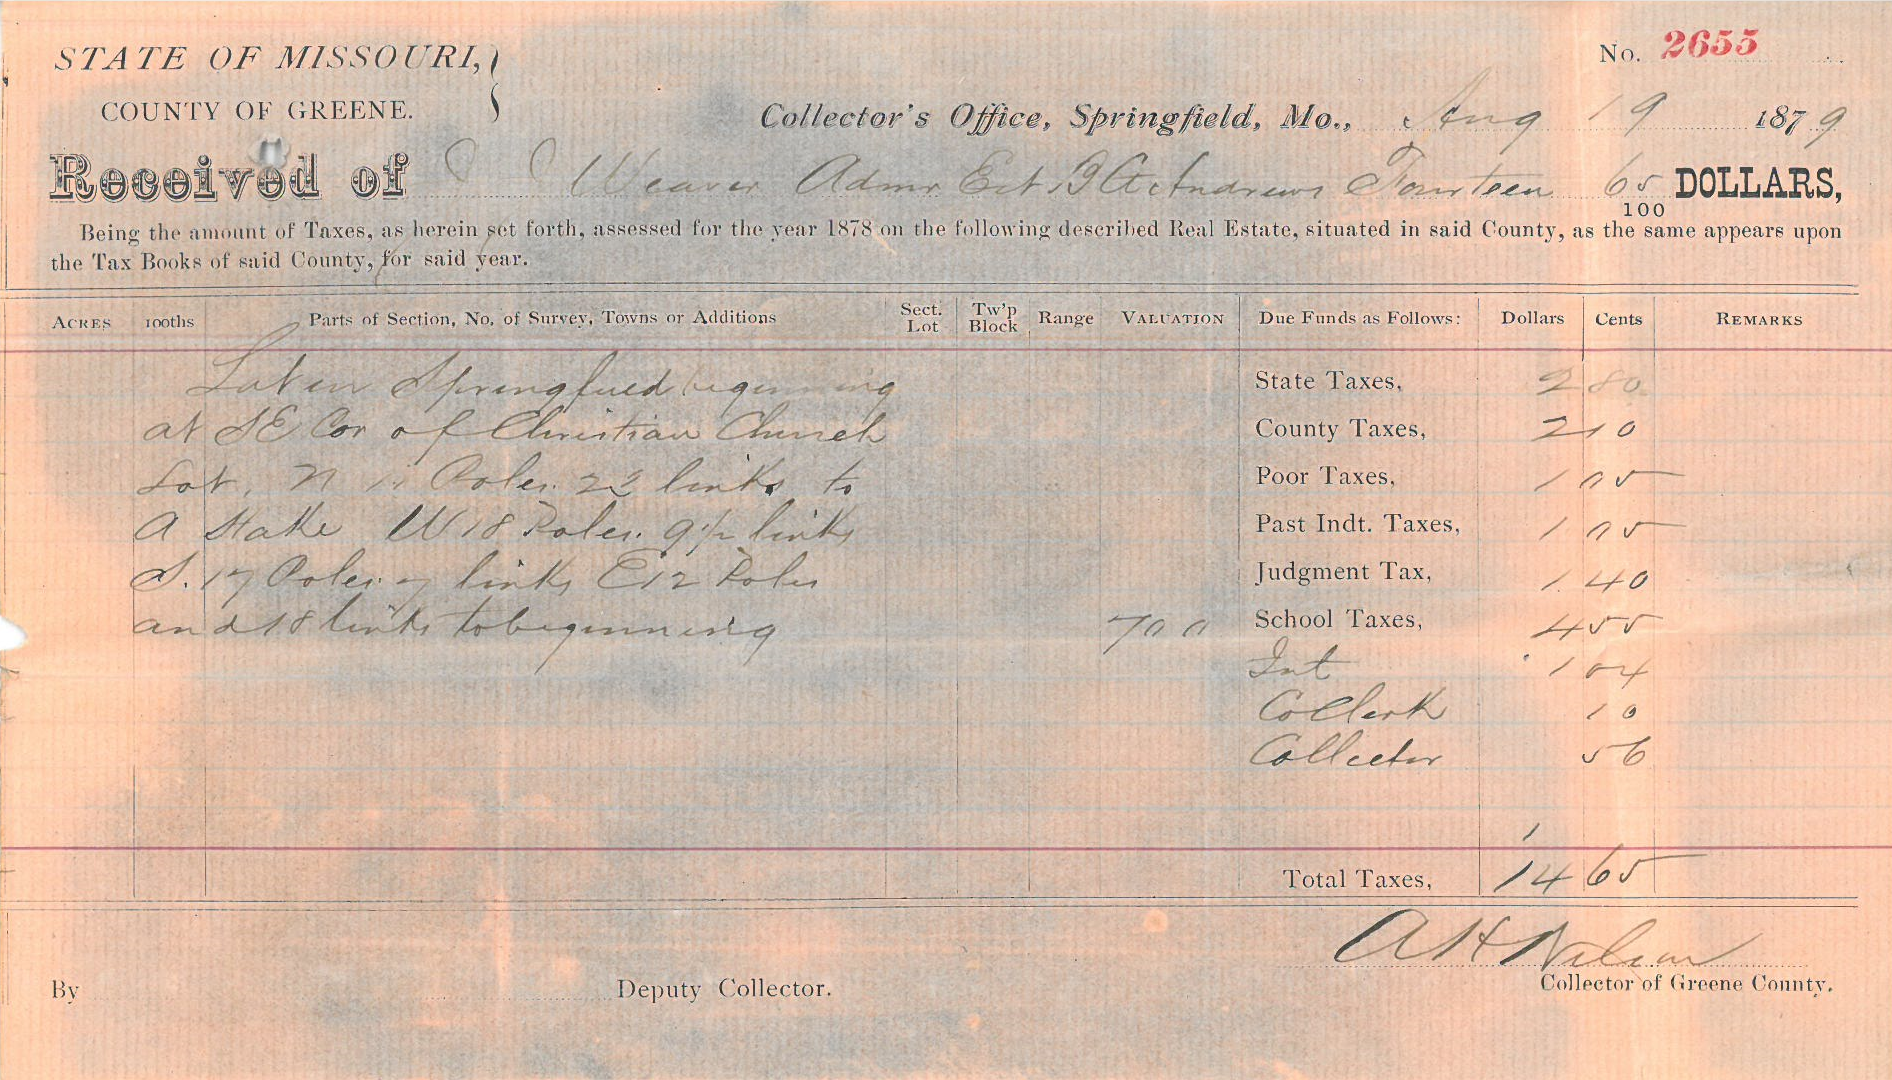 STATE OF MISSOURI,
COUNTY OF GREENE.
No. 2655
Collector's Office, Springfield, Mo., Aug 19 1879
Received of Weaver Admr Est Andrews Fourteen 65/100 DOLLARS,
Being the amount of Taxes, as herein set forth, assessed for the year 1878 on the following described Real Estate, situated in said County, as the same appears upon
the Tax Books of said County, for said year.
ACRES 100ths Parts of Section, No. of Survey, Towns or Additions Sect. Lot Tw'p Block Range VALUATION Due Funds as Follows: Dollars Cents REMARKS
Lot in Springfield beginning State Taxes, 2 80
at SE Cor of Christian Church County Taxes, 2 10
Lot, N Poles. links to Poor Taxes, 1 05
A Stake W 18 Poles. 9 1/2 links Past Indt. Taxes, 1 05
S. 17 Poles. 7 links E 12 Poles Judgment Tax, 1 40
and 18 links to beginning 700 School Taxes, 4 55
Int 1 04
Co Clerk 10
Collector 56
Total Taxes, 14 65
A H Nelson
By Deputy Collector. Collector of Greene County.